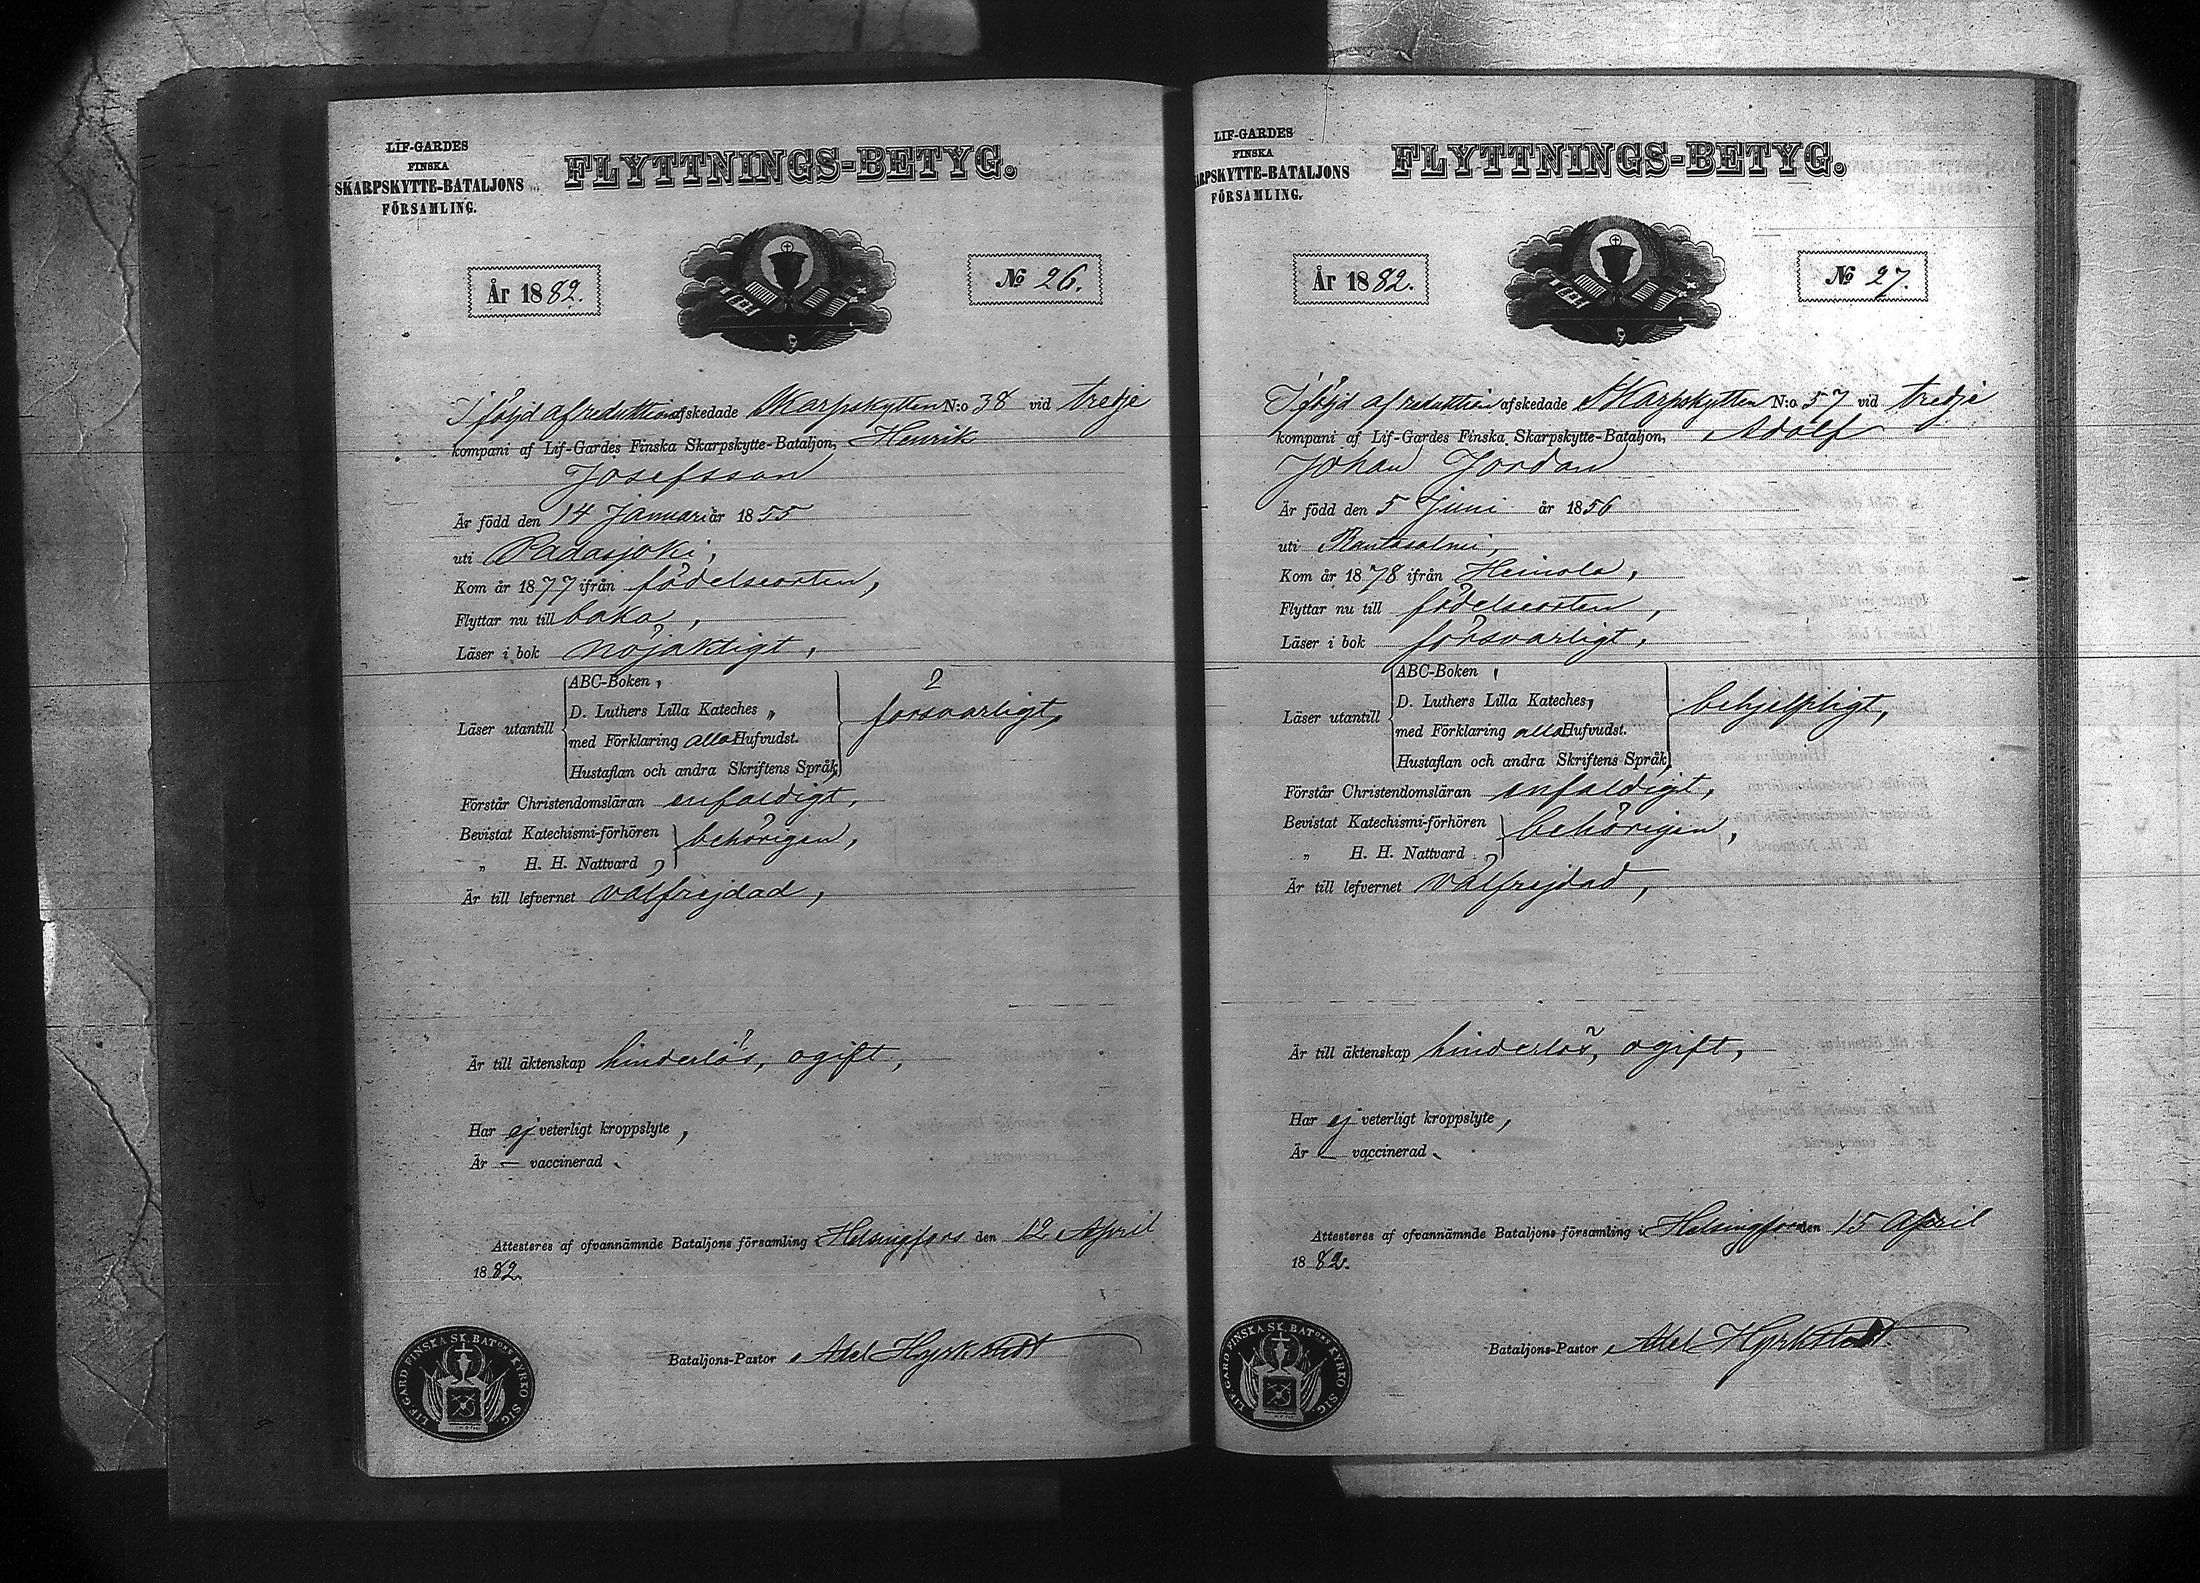 LIF-GARDES
FINSKA
SKARPSKYTTE-BATALJONS
FÖRSAMLING.
FLYTTNINGS-BETYG.
År 1882.
No 26.
I följd af reduktion afskedade Skarpskytten N:o 38 vid tredje
kompani af Lif-Gardes Finska Skarpskytte-Bataljon, Henrik
Josefsson
Är född den 14 Januari år 1855
uti Padasjoki,
Kom år 1877 ifrån födelseorten,
Flyttar nu till baka,
Läser i bok nöjaktigt,
Läser utantill
ABC-Boken,
D. Luthers Lilla Kateches,
med Förklaring alla Hufvudst.
Hustaflan och andra Skriftens Språk,
försvarligt,
Förstår Christendomsläran enfaldigt,
Bevistat Katechismi-förhören
„ H. H. Nattvard
behörigen,
Är till lefvernet välfrejdad,
Är till äktenskap hinderlös, ogift,
Har ej veterligt kroppslyte,
Är — vaccinerad.
Attesteras af ofvannämnde Bataljons församling i Helsingfors den 12 April
1882.
Bataljons-Pastor Axel Hyrkstedt
LIF. GARD. FINSKA SK. BATONS KYRKO SIG.
LIF-GARDES
FINSKA
ARPSKYTTE-BATALJONS
FÖRSAMLING.
FLYTTNINGS-BETYG.
År 1882.
No 27.
I följd af reduktion afskedade Skarpskytten N:o 57 vid tredje
kompani af Lif-Gardes Finska Skarpskytte-Bataljon, Adolf
Johan Jordan
Är född den 5 Juni år 1856
uti Rantasalmi,
Kom år 1878 ifrån Heinola,
Flyttar nu till födelseorten,
Läser i bok försvarligt,
Läser utantill
ABC-Boken,
D. Luthers Lilla Kateches,
med Förklaring alla Hufvudst.
Hustaflan och andra Skriftens Språk,
behjelpligt,
Förstår Christendomsläran enfaldigt,
Bevistat Katechismi-förhören
„ H. H. Nattvard
behörigen,
Är till lefvernet välfrejdad,
Är till äktenskap hinderlös, ogift,
Har ej veterligt kroppslyte,
Är — vaccinerad.
Attesteras af ofvannämnde Bataljons församling i Helsingfors den 15 April
1882.
Bataljons-Pastor Axel Hyrkstedt
LIF. GARD FINSKA SK. BATONS KYRKO SIG.